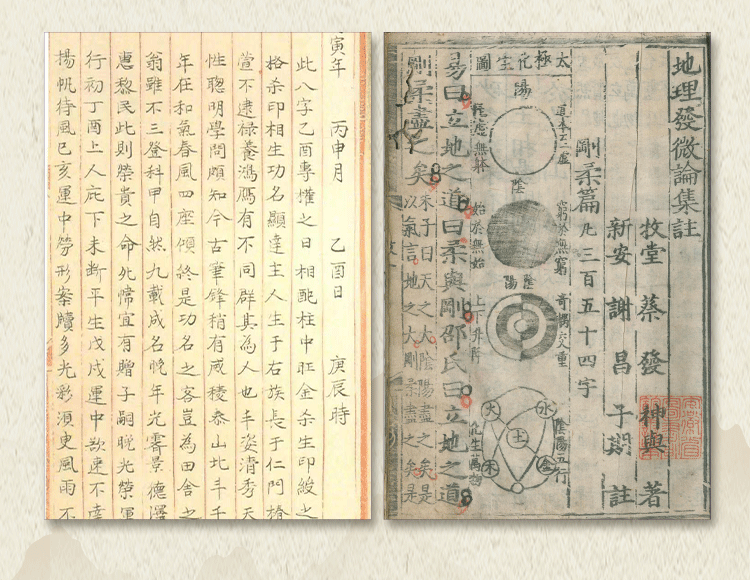 寅年 丙申月 乙酉日 庚辰時
此八字乙酉專權之日相配柱中旺金杀生印綬之
格杀印相生功名顯達主人生于右族長于仁門椿
萱不逮祿養鴻鴈有不同群其為人也丰姿清秀天
性聰明學問頗知今古筆鋒稍有威稜泰山北斗千
年在和氣春風四座傾終是功名之客豈為田舍之
翁雖不三登科甲自然九載成名晚年光霽景德澤
惠黎民此則榮貴之命 幃宜有贈子嗣晚光榮運
行初丁酉上人庇下未斷平生戊戌運中欲速不達
揚帆待風己亥運中勞形案牘多光彩須更風雨不
地理發微論集註
牧堂 蔡發 神與 著
新安 謝昌 子期 註
剛柔篇 凡三百五十四字
太極化生圖
陽
陰
道本至虛
耗虛無躰
窮於無窮
始於無始
陰陽
上下升降
陰陽五行
化生萬物
水
火
土
木
金
易曰立地之道曰柔與剛邵氏曰立地之道
剛柔盡之矣
朱子曰天之大陰陽盡之矣是
以氣言地之大剛柔盡之矣是